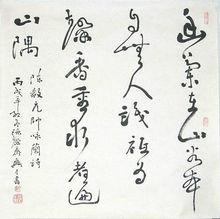 幽蘭在山谷本
自無人識祗為
馨香重求者遍
山隅
陳毅元帥詠蘭詩
丙戌年